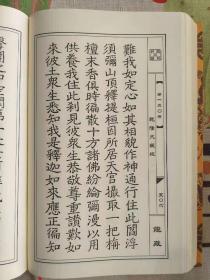 第一五〇冊
乾隆大藏經
五〇六
龍藏
難我如定心如其相貌作神通行住此閻浮
須彌山頂釋提桓因所居天宮攝取一把栴
檀末香俱時徧散十方諸佛紛綸彌漫以用
供養我住此刹見彼衆生恭敬尊重讚歎如
來彼土衆生悉知我是釋迦如來應正徧知